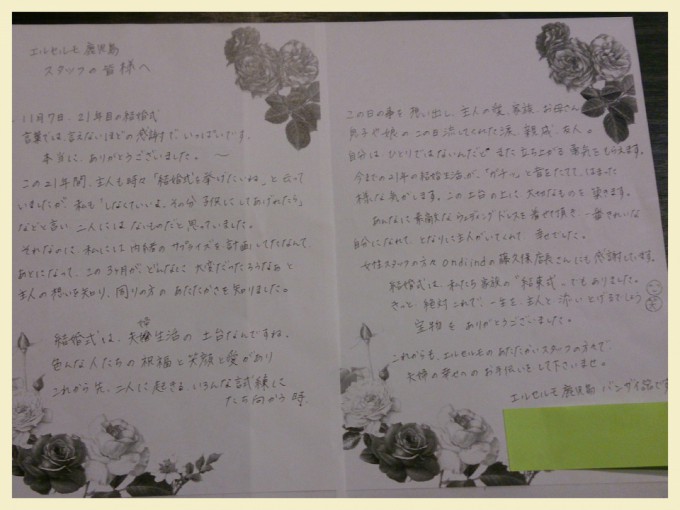 エルセルモ 鹿児島
スタッフの皆様へ
11月7日、21年目の結婚式
言葉では、言えないほどの感謝で いっぱいです。
本当に、ありがとうございました。 〜
この21年間、主人も時々「結婚式を挙げたいね」と言って
いましたが、私も「しなくていいよ、その分 子供に してあげれたら」
などと言い 二人には ないものだと思っていました。
それなのに、私には 内緒の サプライズを計画してたなんて
あとになって、この3ヶ月が、どんなに 大変だったろうなぁと
主人の想いを知り、周りの方の あたたかさを知りました。
結婚式は、夫婦生活の 土台なんですね。
色んな人たちの 祝福と笑顔と愛があり
これから先、二人に起きる いろんな試練に
たち向かう 時、
この日の事を 思い出し、主人の愛、家族、お母さん
息子や娘の この日 流してくれた涙、親戚、友人。
自分は、ひとりではないんだと また 立ち上がる 勇気をもらえます。
今までの21年の結婚生活が、"ガチッ"と音をたてて、はまった
様な気がします。この土台の上に 大切なものを 築きます。
あんなに 素敵な ウェディングドレスを着せて頂き、一番きれいな
自分になれて、となりに主人がいてくれて 幸せでした。
女性スタッフの方々 ondiindの藤久保店長さんにも感謝しています。
結婚式は、私たち家族の「結束式」でもありました。
きっと、絶対 これで、一生を、主人と 添いとげるでしょう
宝物を ありがとうございました。
これからも、エルセルモの あたたかいスタッフの方々で
夫婦の幸せへの お手伝いをして下さいませ。
エルセルモ 鹿児島 バンザイです